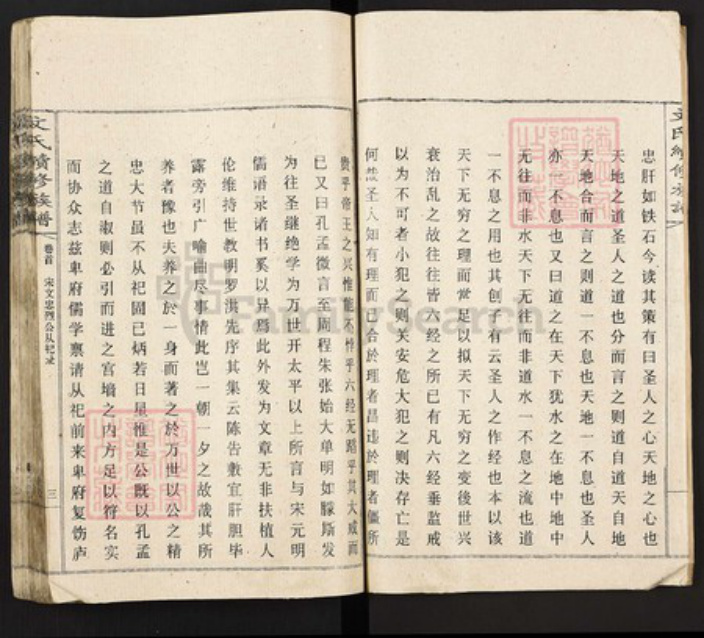 忠肝如铁石今读其策有曰圣人之心天地之心也
天地之道圣人之道也分而言之则道自道天自地
天地合而言之则道一不息也天地一不息也圣人
亦一不息也又曰道之在天下犹水之在地中地中
无往而非水天下无往而非道水一不息之流也道
一不息之用也其刽子有云圣人之作经也本以该
天下无穷之理而常足以拟天下无穷之变後世兴
衰治乱之故往往皆六经之所已有凡六经垂监戒
以为不可者小犯之则天安危大犯之则决存亡是
何哉圣人知有理而已合於理者昌违於理者僵所
贵乎帝王之兴惟能不悖乎六经无蹈乎其大戒而
已又曰孔孟微言至周程朱张始大单明如朦斯发
为往圣继绝学为万世开太平以上所言与宋元明
儒语录诸书奚以异焉此外发为文章无非扶植人
伦维持世教明罗洪先序其集云陈告敷宜肝胆毕
露旁引广喻曲尽事情此岂一朝一夕之故哉其所
养者豫也夫养之於一身而著之於万世以公之精
忠大节虽不从祀固已炳若日星惟是公既以孔孟
之道自淑则必引而进之宫墙之内方足以符名实
而协众志兹卑府儒学禀请从祀前来卑府复饬庐
文氏续修族谱
卷首 宋文忠烈公从祀录
三
FamilySearch